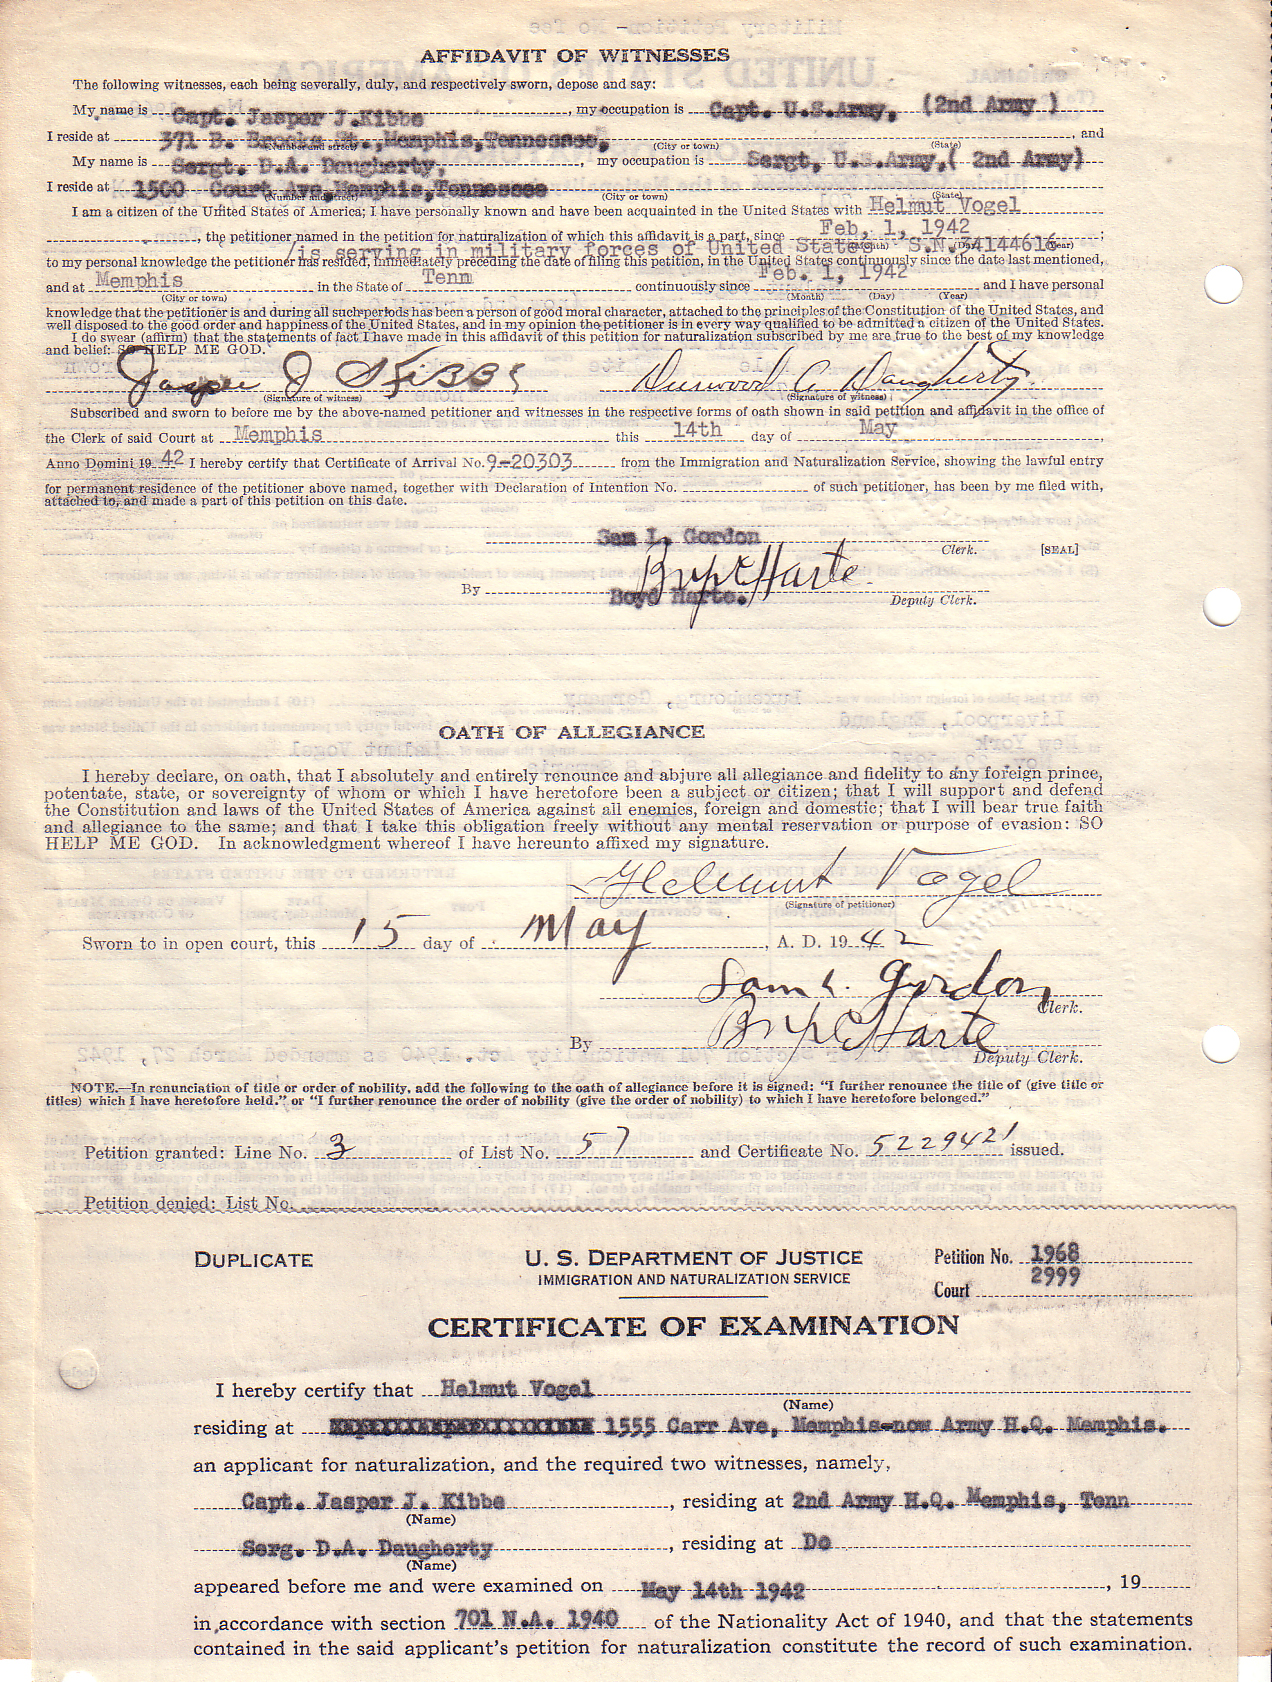 AFFIDAVIT OF WITNESSES
The following witnesses, each being severally, duly, and respectively sworn, depose and say:
My name is Capt. Jasper J.Kibbe, my occupation is Capt. U.S.Army, (2nd Army )
I reside at 371 B. Brooks St., Memphis,Tennessee, , and
(Number and street) (City or town) (State)
My name is Sergt. D.A. Daugherty, , my occupation is Sergt, U.S.Army,( 2nd Army)
I reside at 1500 Court Ave,Memphis,Tennessee
(Number and street) (City or town) (State)
I am a citizen of the United States of America; I have personally known and have been acquainted in the United States with Helmut Vogel
, the petitioner named in the petition for naturalization of which this affidavit is a part, since Feb, 1, 1942 ;
/is serving in military forces of United States S.N. 34144616
(Month) (Day) (Year)
to my personal knowledge the petitioner has resided, immediately preceding the date of filing this petition, in the United States continuously since the date last mentioned,
and at Memphis in the State of Tenn continuously since Feb. 1, 1942 and I have personal
(City or town) (Month) (Day) (Year)
knowledge that the petitioner is and during all such periods has been a person of good moral character, attached to the principles of the Constitution of the United States, and
well disposed to the good order and happiness of the United States, and in my opinion the petitioner is in every way qualified to be admitted a citizen of the United States.
I do swear (affirm) that the statements of fact I have made in this affidavit of this petition for naturalization subscribed by me are true to the best of my knowledge
and belief: SO HELP ME GOD.
Jasper J Kibbe Durwood A Daugherty
(Signature of witness) (Signature of witness)
Subscribed and sworn to before me by the above-named petitioner and witnesses in the respective forms of oath shown in said petition and affidavit in the office of
the Clerk of said Court at Memphis this 14th day of May ,
Anno Domini 19 42 I hereby certify that Certificate of Arrival No. 9-20303 from the Immigration and Naturalization Service, showing the lawful entry
for permanent residence of the petitioner above named, together with Declaration of Intention No. of such petitioner, has been by me filed with,
attached to, and made a part of this petition on this date.
Sam L. Gordon
Clerk. [SEAL]
By Boyd Harte.
Deputy Clerk.
OATH OF ALLEGIANCE
I hereby declare, on oath, that I absolutely and entirely renounce and abjure all allegiance and fidelity to any foreign prince,
potentate, state, or sovereignty of whom or which I have heretofore been a subject or citizen; that I will support and defend
the Constitution and laws of the United States of America against all enemies, foreign and domestic; that I will bear true faith
and allegiance to the same; and that I take this obligation freely without any mental reservation or purpose of evasion: SO
HELP ME GOD. In acknowledgment whereof I have hereunto affixed my signature.
Helmut Vogel
(Signature of petitioner)
Sworn to in open court, this 15 day of May , A. D. 19 42
Sam L. Gordon
Clerk.
By Harte
Deputy Clerk.
NOTE.—In renunciation of title or order of nobility, add the following to the oath of allegiance before it is signed: "I further renounce the title of (give title or
titles) which I have heretofore held." or "I further renounce the order of nobility (give the order of nobility) to which I have heretofore belonged."
Petition granted: Line No. 3 of List No. 57 and Certificate No. 5229421 issued.
Petition denied: List No.
DUPLICATE U. S. DEPARTMENT OF JUSTICE Petition No. 1968
IMMIGRATION AND NATURALIZATION SERVICE Court 2999
CERTIFICATE OF EXAMINATION
I hereby certify that Helmut Vogel
(Name)
residing at 1555 Carr Ave, Memphis-now Army H.Q. Memphis.
an applicant for naturalization, and the required two witnesses, namely,
Capt. Jasper J. Kibbe , residing at 2nd Army H.Q. Memphis, Tenn
(Name)
Serg. D.A. Daugherty , residing at Do
(Name)
appeared before me and were examined on May 14th 1942 , 19
in accordance with section 701 N.A. 1940 of the Nationality Act of 1940, and that the statements
contained in the said applicant's petition for naturalization constitute the record of such examination.